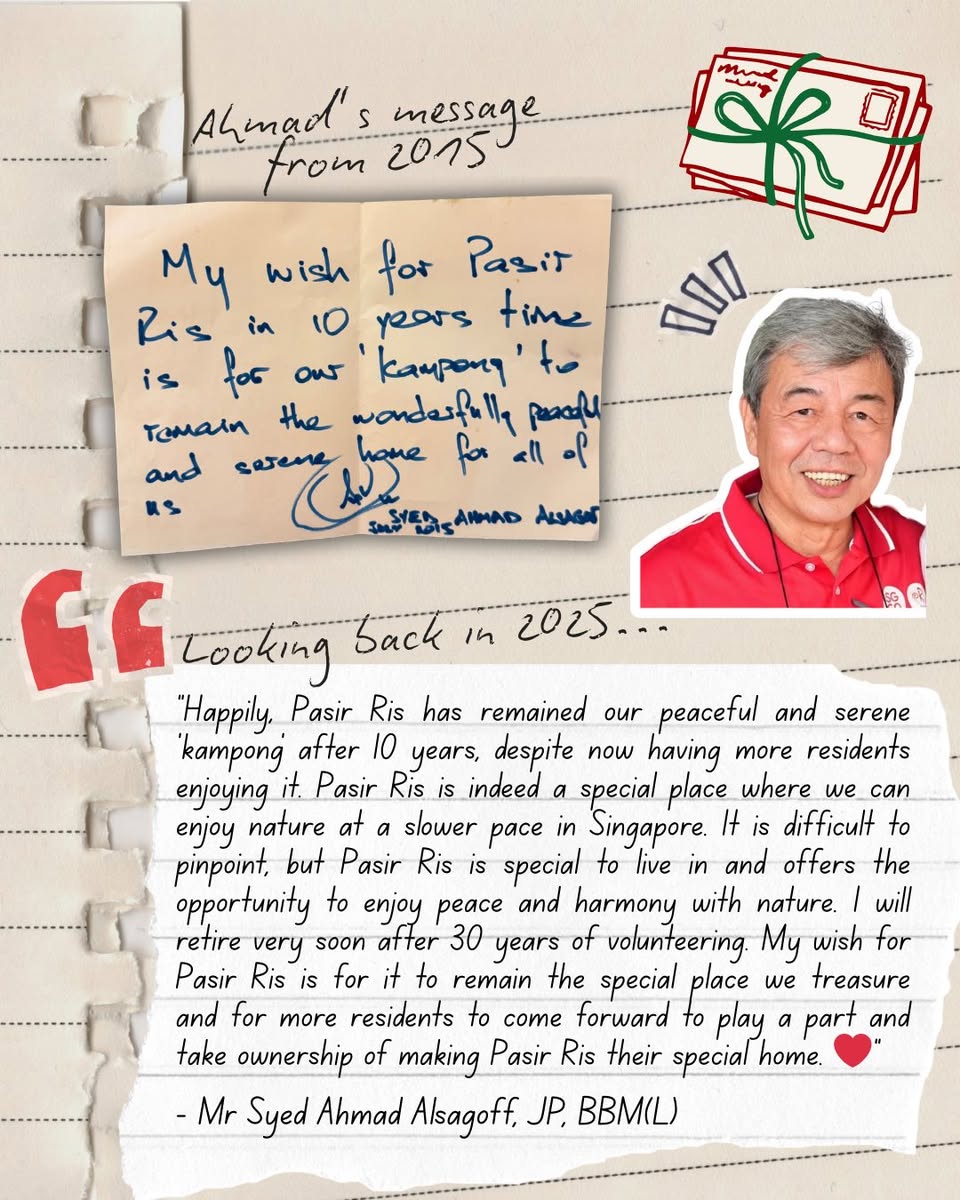 Ahmad's message
from 2015
My wish for Pasir
Ris in 10 years time
is for our 'kampong' to
remain the wonderfully peaceful
and serene home for all of
us
SYED AHMAD ALSAGOFF
2015
SG
Looking back in 2025...
"Happily, Pasir Ris has remained our peaceful and serene
'kampong' after 10 years, despite now having more residents
enjoying it. Pasir Ris is indeed a special place where we can
enjoy nature at a slower pace in Singapore. It is difficult to
pinpoint, but Pasir Ris is special to live in and offers the
opportunity to enjoy peace and harmony with nature. I will
retire very soon after 30 years of volunteering. My wish for
Pasir Ris is for it to remain the special place we treasure
and for more residents to come forward to play a part and
take ownership of making Pasir Ris their special home. ❤"
- Mr Syed Ahmad Alsagoff, JP, BBM(L)